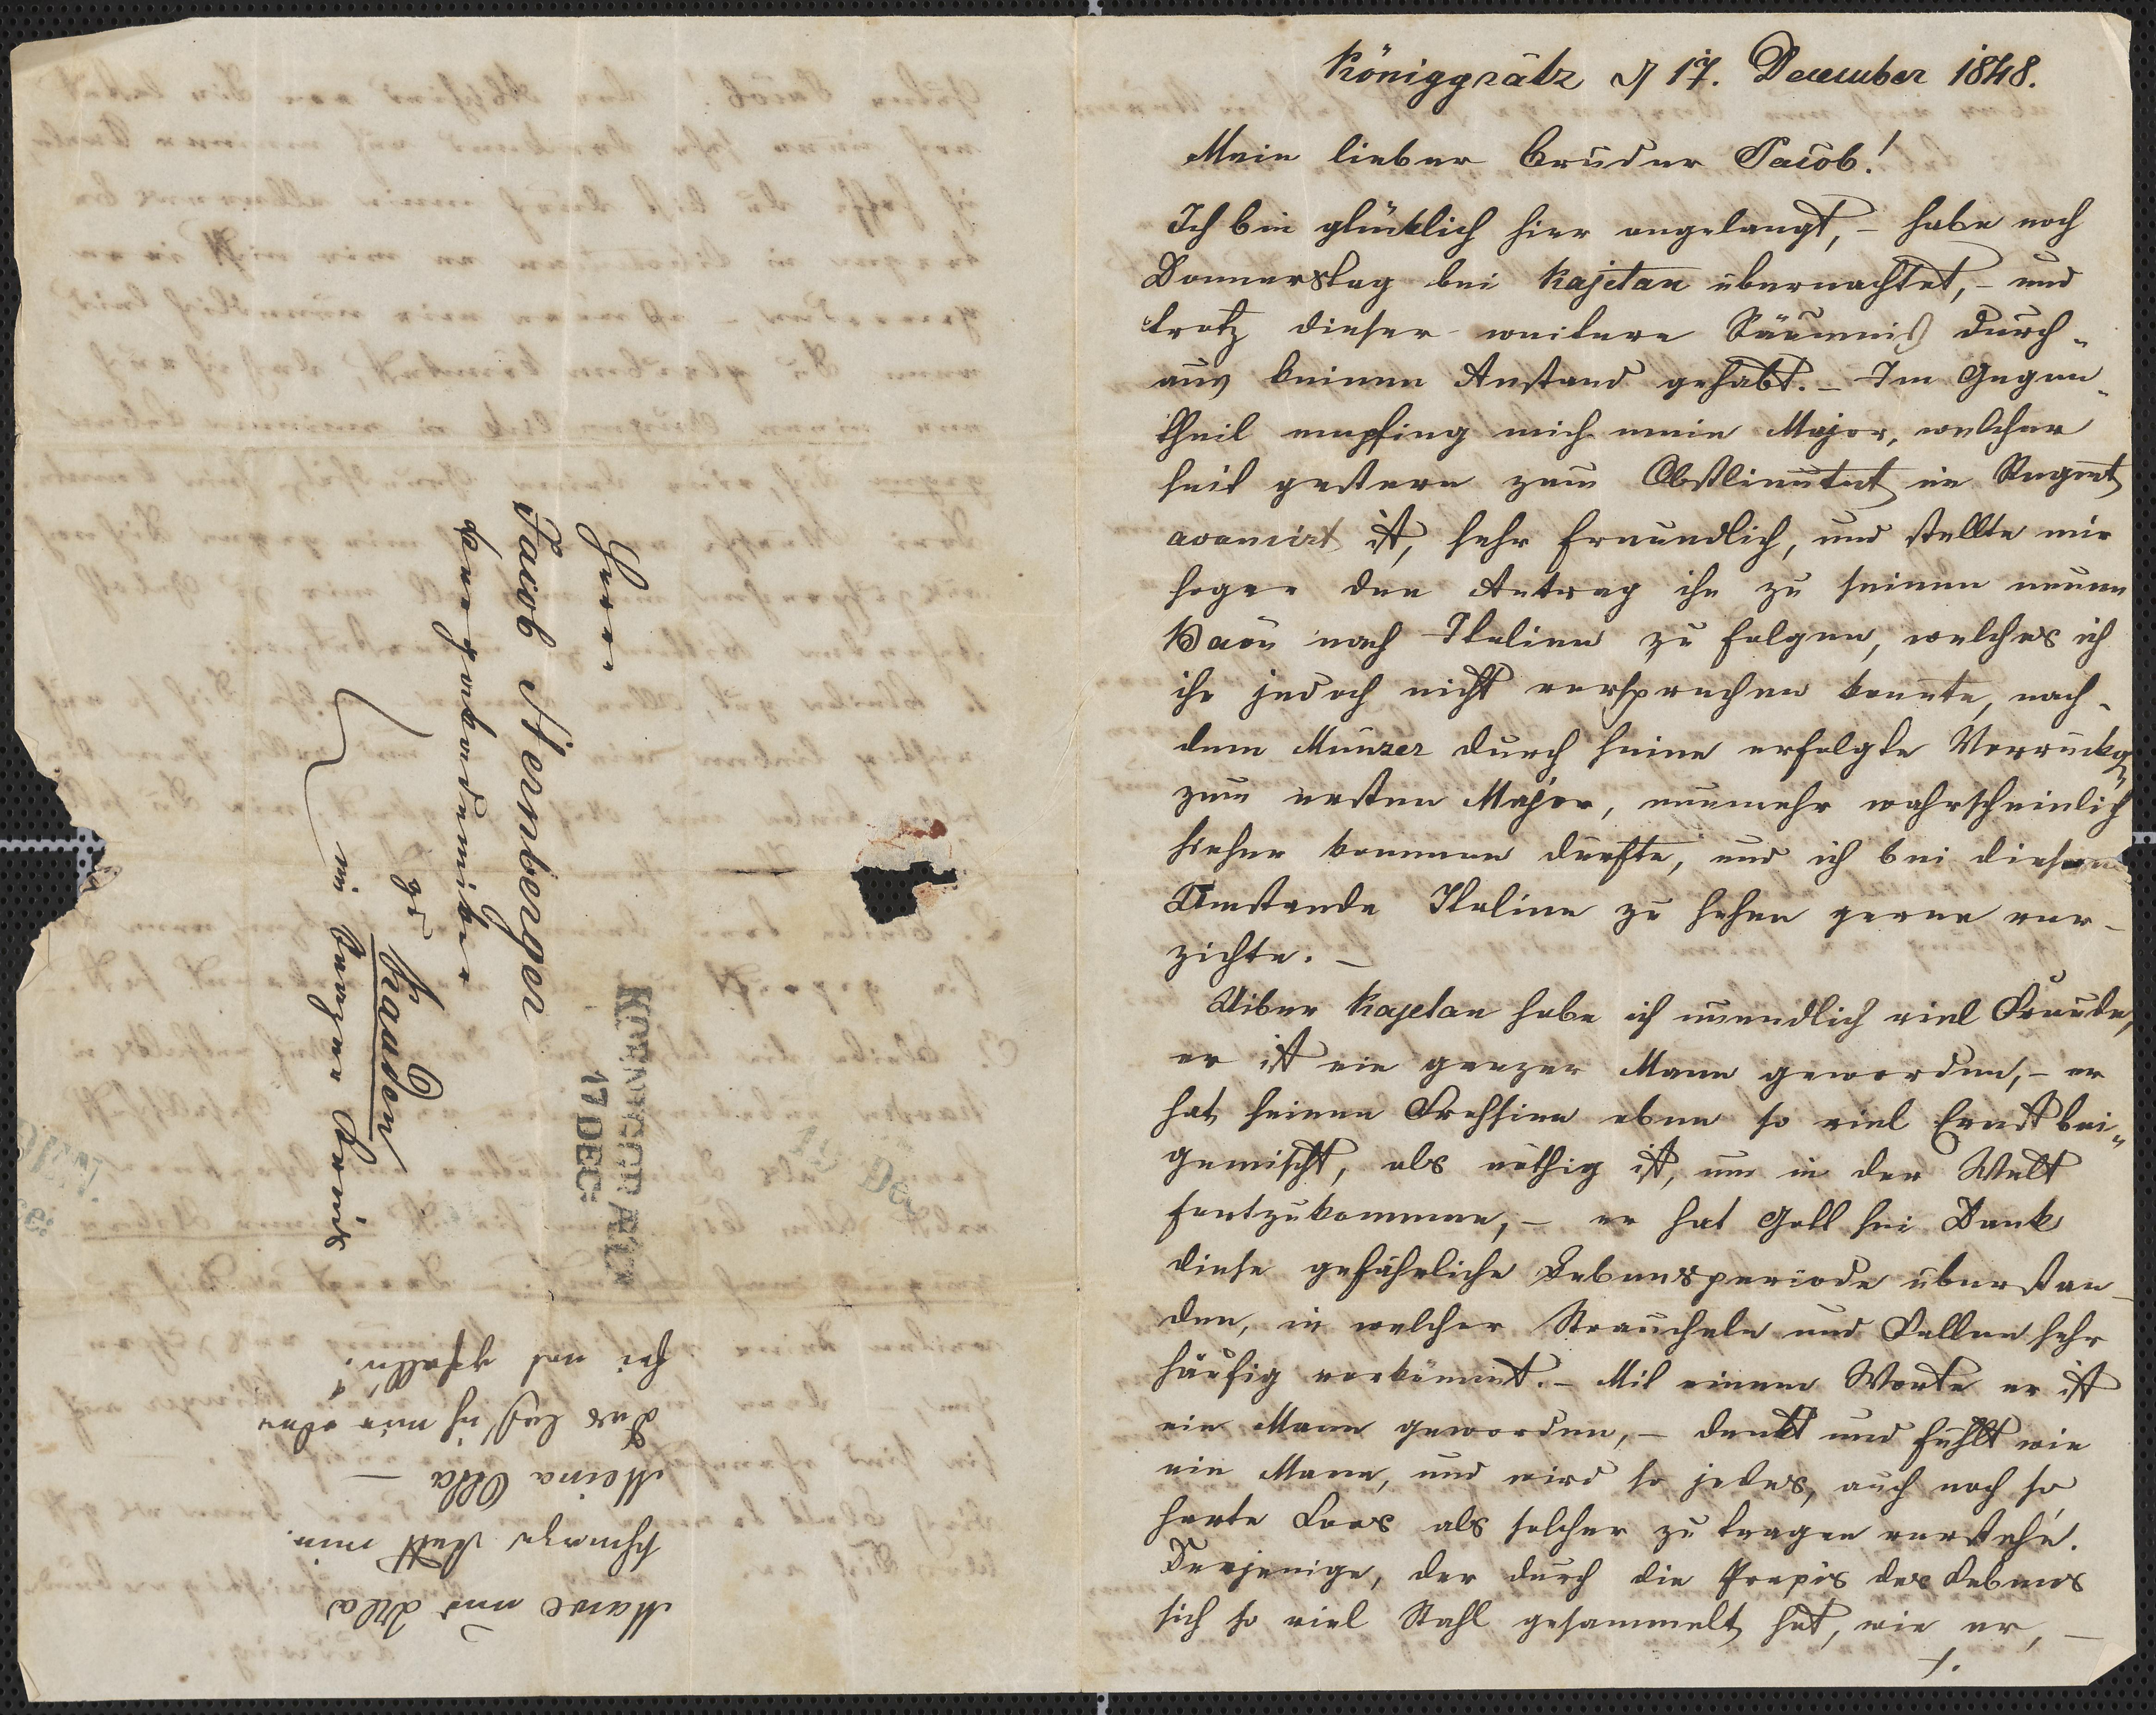 Königgrätz d 17. December 1848.
Mein lieber Bruder Jacob!
Ich bin glücklich hier angelangt, – habe noch
Donnerstag bei Kajetan übernachtet, – und
trotz dieser weitern Säumniß durch„
aus keinen Anstand gehabt. – Im Gegen„
theil empfing mich mein Major, welcher
seit gestern zum Obstlieutnt im Regmt
avancirt ist, sehr freundlich, und stellte mir
sogar den Antrag ihm zu seinem neuen
Baon nach Italien zu folgen, welches ich
ihm jedoch nicht versprechen konnte, nach„
dem Münzer durch seine erfolgte Vorrückg
zum ersten Major, nunmehr wahrscheinlich
hieher kommen dürfte, und ich bei diesem
Umstande Italien zu sehen gerne ver–
zichte. –
Uiber Kajetan habe ich unendlich viel Freude,
er ist ein ganzer Mann geworden, – er
hat seinem Frohsinn eben so viel Ernst bei„
gemischt, als nöthig ist, um in der Welt
fortzukommen, – er hat Gott sei Dank
diese gefährliche Lebensperiode überstan–
den, in welcher Straucheln und Fallen sehr
häufig vorkömmt. – Mit einem Worte er ist
ein Mann geworden, – denkt und fühlt wie
ein Mann, und wird so jedes, auch noch so
harte Loos als solcher zu tragen verstehn.
Derjenige, der durch die Praxis des Lebens
sich so viel Stahl gesammelt hat, wie er, –
/.
Herrn
Jacob Sternberger
zu
Kaaden
KOENIGGRAETZ
17 DEC:
19 De
Marie und
statt mir.
Meine
Das laß ich mir eben
sei gefallen!